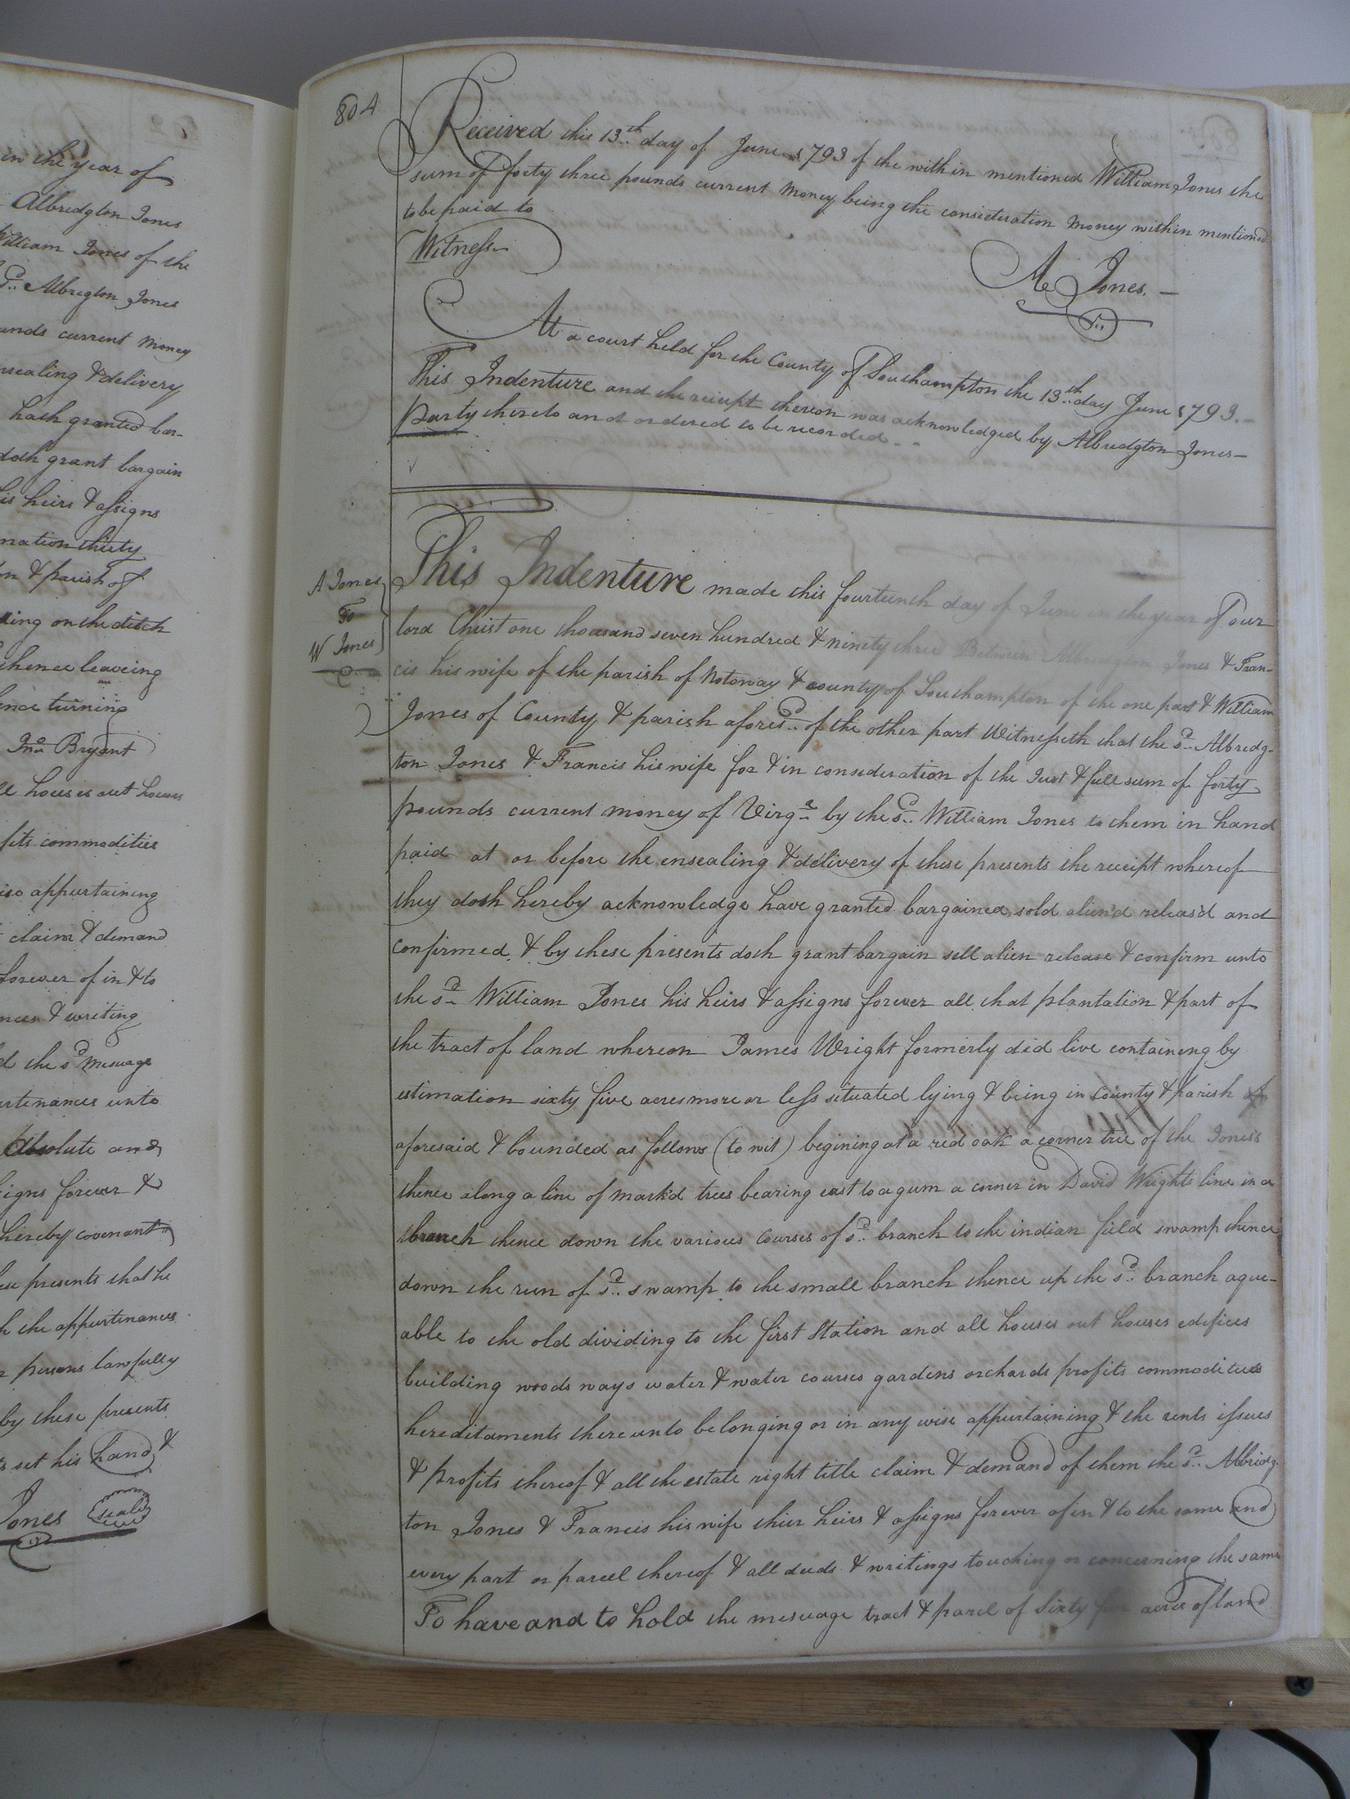 in the year of
Albredgton Jones
William Jones of the
Albregton Jones
current money
ensealing & delivery
hath granted bar-
doth grant bargain
his heirs & assigns
thirty
& parish of
on the ditch
thence leaveing
turning
Jno. Bryant
houses out houses
commodities
appurtaining
claim & demand
forever of in & to
& writing
the sd. mesuage
unto
absolute and
forever &
hereby covenant
these presents that he
the appurtenances
persons lawfully
by these presents
set his hand &
Jones (seal)
804
Received this 13th day of June 1793 of the within mentioned William Jones the
sum of forty three pounds current money being the consideration money within mentioned
to be paid to
Witness
Jones.
At a court held for the County of Southampton the 13th day June 1793.
This Indenture and the receipt thereon was acknowledged by Albredgton Jones
party thereto and ordered to be recorded
A Jones
To
W Jones
This Indenture made this fourteenth day of June in the year of our
lord Christ one thousand seven hundred & ninety three Between Albredgton Jones & Fran-
cis his wife of the parish of Notoway & county of Southampton of the one part & William
Jones of County & parish aforesd. of the other part Witnesseth that the sd. Albredg-
ton Jones & Francis his wife for & in consideration of the Just & full sum of forty
pounds current money of Virga. by the sd. William Jones to them in hand
paid at or before the ensealing & delivery of these presents the receipt whereof
they doth hereby acknowledge have granted bargained sold alien'd releas'd and
confirmed & by these presents doth grant bargain sell alien release & confirm unto
the sd. William Jones his heirs & assigns forever all that plantation & part of
the tract of land whereon James Wright formerly did live containing by
estimation sixty five acres more or less situated lying & being in County & parish
aforesaid & bounded as follows (to wit) begining at a red oak a corner tree of the Jones's
thence along a line of mark'd trees bearing east to a gum a corner in David Wrights line in a
branch thence down the various courses of sd. branch to the indian field swamp thence
down the run of sd. swamp to the small branch thence up the sd. branch agree-
able to the old dividing to the first station and all houses out houses edifices
building woods ways water & water courses gardens orchards profits commodities
hereditaments thereunto belonging or in any wise appurtaining & the rents issues
& profits thereof & all the estate right title claim & demand of them the sd. Albridg-
ton Jones & Francis his wife thier heirs & assigns forever of in & to the same and
every part or parcel thereof & all deeds & writings touching or concerning the same
To have and to hold the mesuage tract & parcel of sixty five acres of land